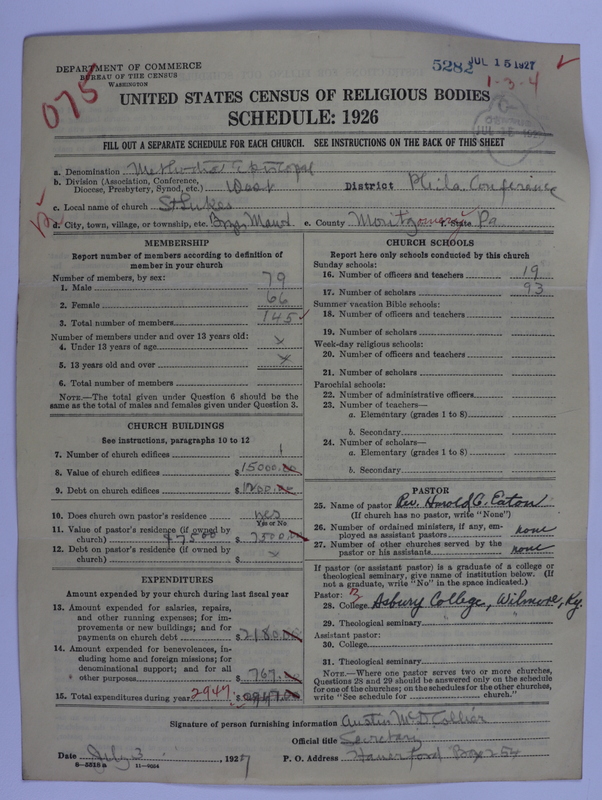 DEPARTMENT OF COMMERCE
BUREAU OF THE CENSUS
WASHINGTON
5282 JUL 15 1927
1-3-4
075
UNITED STATES CENSUS OF RELIGIOUS BODIES
SCHEDULE: 1926
FILL OUT A SEPARATE SCHEDULE FOR EACH CHURCH. SEE INSTRUCTIONS ON THE BACK OF THIS SHEET
a. Denomination Methodist Episcopal
b. Division (Association, Conference, Diocese, Presbytery, Synod, etc.) West District Phila. Conference
c. Local name of church St Lukes
d. City, town, village, or township, etc. Bryn Mawr e. County Montgomery f. State Pa
MEMBERSHIP
Report number of members according to definition of
member in your church
Number of members, by sex:
1. Male 79
2. Female 66
3. Total number of members 145
Number of members under and over 13 years old:
4. Under 13 years of age x
5. 13 years old and over x
6. Total number of members
NOTE.—The total given under Question 6 should be
same as the total of males and females given under Question 3.
CHURCH BUILDINGS
See instructions, paragraphs 10 to 12
7. Number of church edifices 1
8. Value of church edifices $15000.00
9. Debt on church edifices $1200.00
10. Does church own pastor's residence yes
Yes or No
11. Value of pastor's residence (if owned by
church) $7500 $7500.00
12. Debt on pastor's residence (if owned by
church) $ x
EXPENDITURES
Amount expended by your church during last fiscal year
13. Amount expended for salaries, repairs,
and other running expenses; for im-
provements or new buildings; and for
payments on church debt $2180.00
14. Amount expended for benevolences, in-
cluding home and foreign missions; for
denominational support; and for all
other purposes $767.00
15. Total expenditures during year 2947
CHURCH SCHOOLS
Report here only schools conducted by this church
Sunday schools:
16. Number of officers and teachers 19
17. Number of scholars 93
Summer vacation Bible schools:
18. Number of officers and teachers
19. Number of scholars
Week-day religious schools:
20. Number of officers and teachers
21. Number of scholars
Parochial schools:
22. Number of administrative officers
23. Number of teachers—
a. Elementary (grades 1 to 8)
b. Secondary
24. Number of scholars—
a. Elementary (grades 1 to 8)
b. Secondary
PASTOR
25. Name of pastor Rev. Harold C. Eaton
(If church has no pastor, write "None")
26. Number of ordained ministers, if any, em-
ployed as assistant pastors none
27. Number of other churches served by the
pastor or his assistants none
If pastor (or assistant pastor) is a graduate of a college or
theological seminary, give name of institution below. (If
not a graduate, write "No" in the space indicated.)
Pastor:
28. College Asbury College, Wilmore, Ky.
29. Theological seminary " "
Assistant pastor:
30. College
31. Theological seminary
NOTE.—Where one pastor serves two or more churches,
Questions 28 and 29 should be answered only on the schedule
for one of the churches; on the schedules for the other churches,
write "See schedule for church."
Signature of person furnishing information Austin McD Collier
Official title Secretary
Date July 3, 1927 P. O. Address Haverford Box 254
8-5818a 11-9024